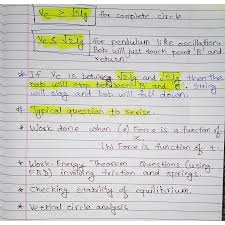 Vc ≥ √5lg for complete circle
Vc ≤ √2lg for pendulum like oscillation.
Bob will just touch point 'B' and
return.
* If Vc is between √2lg and √5lg then the
bob will stop between B and C. String
will slag and bob will fall down.
* Typical question to revise.
* Work done when (a) Force is a function of
x
(b) Force is function of t.
* Work-Energy Theorem Questions (using
FBD) involving friction and springs.
* Checking stability of equilibrium.
* Vertical circle analysis